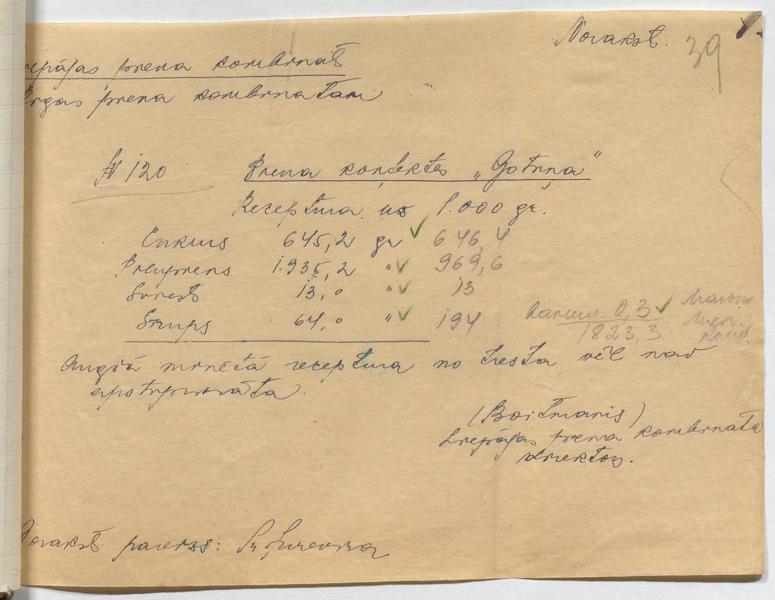 Norakst. 39
Liepājas piena kombināts
Rīgas piena kombinātam
№ 120 Piena konfektes „Gotiņa“
Receptūra uz 1.000 gr.
Cukurs 645,2 gr 646,4
Pilnpiens 1.935,2 " 969,6
Sviests 13,0 " 13
Sīrups 64,0 " 194
0,3
1823,3
Augšā minētā receptūra no tresta vēl nav
apstiprināta.
(Boitmanis)
Liepājas piena kombināta
direktors.
Norakst pareizs: